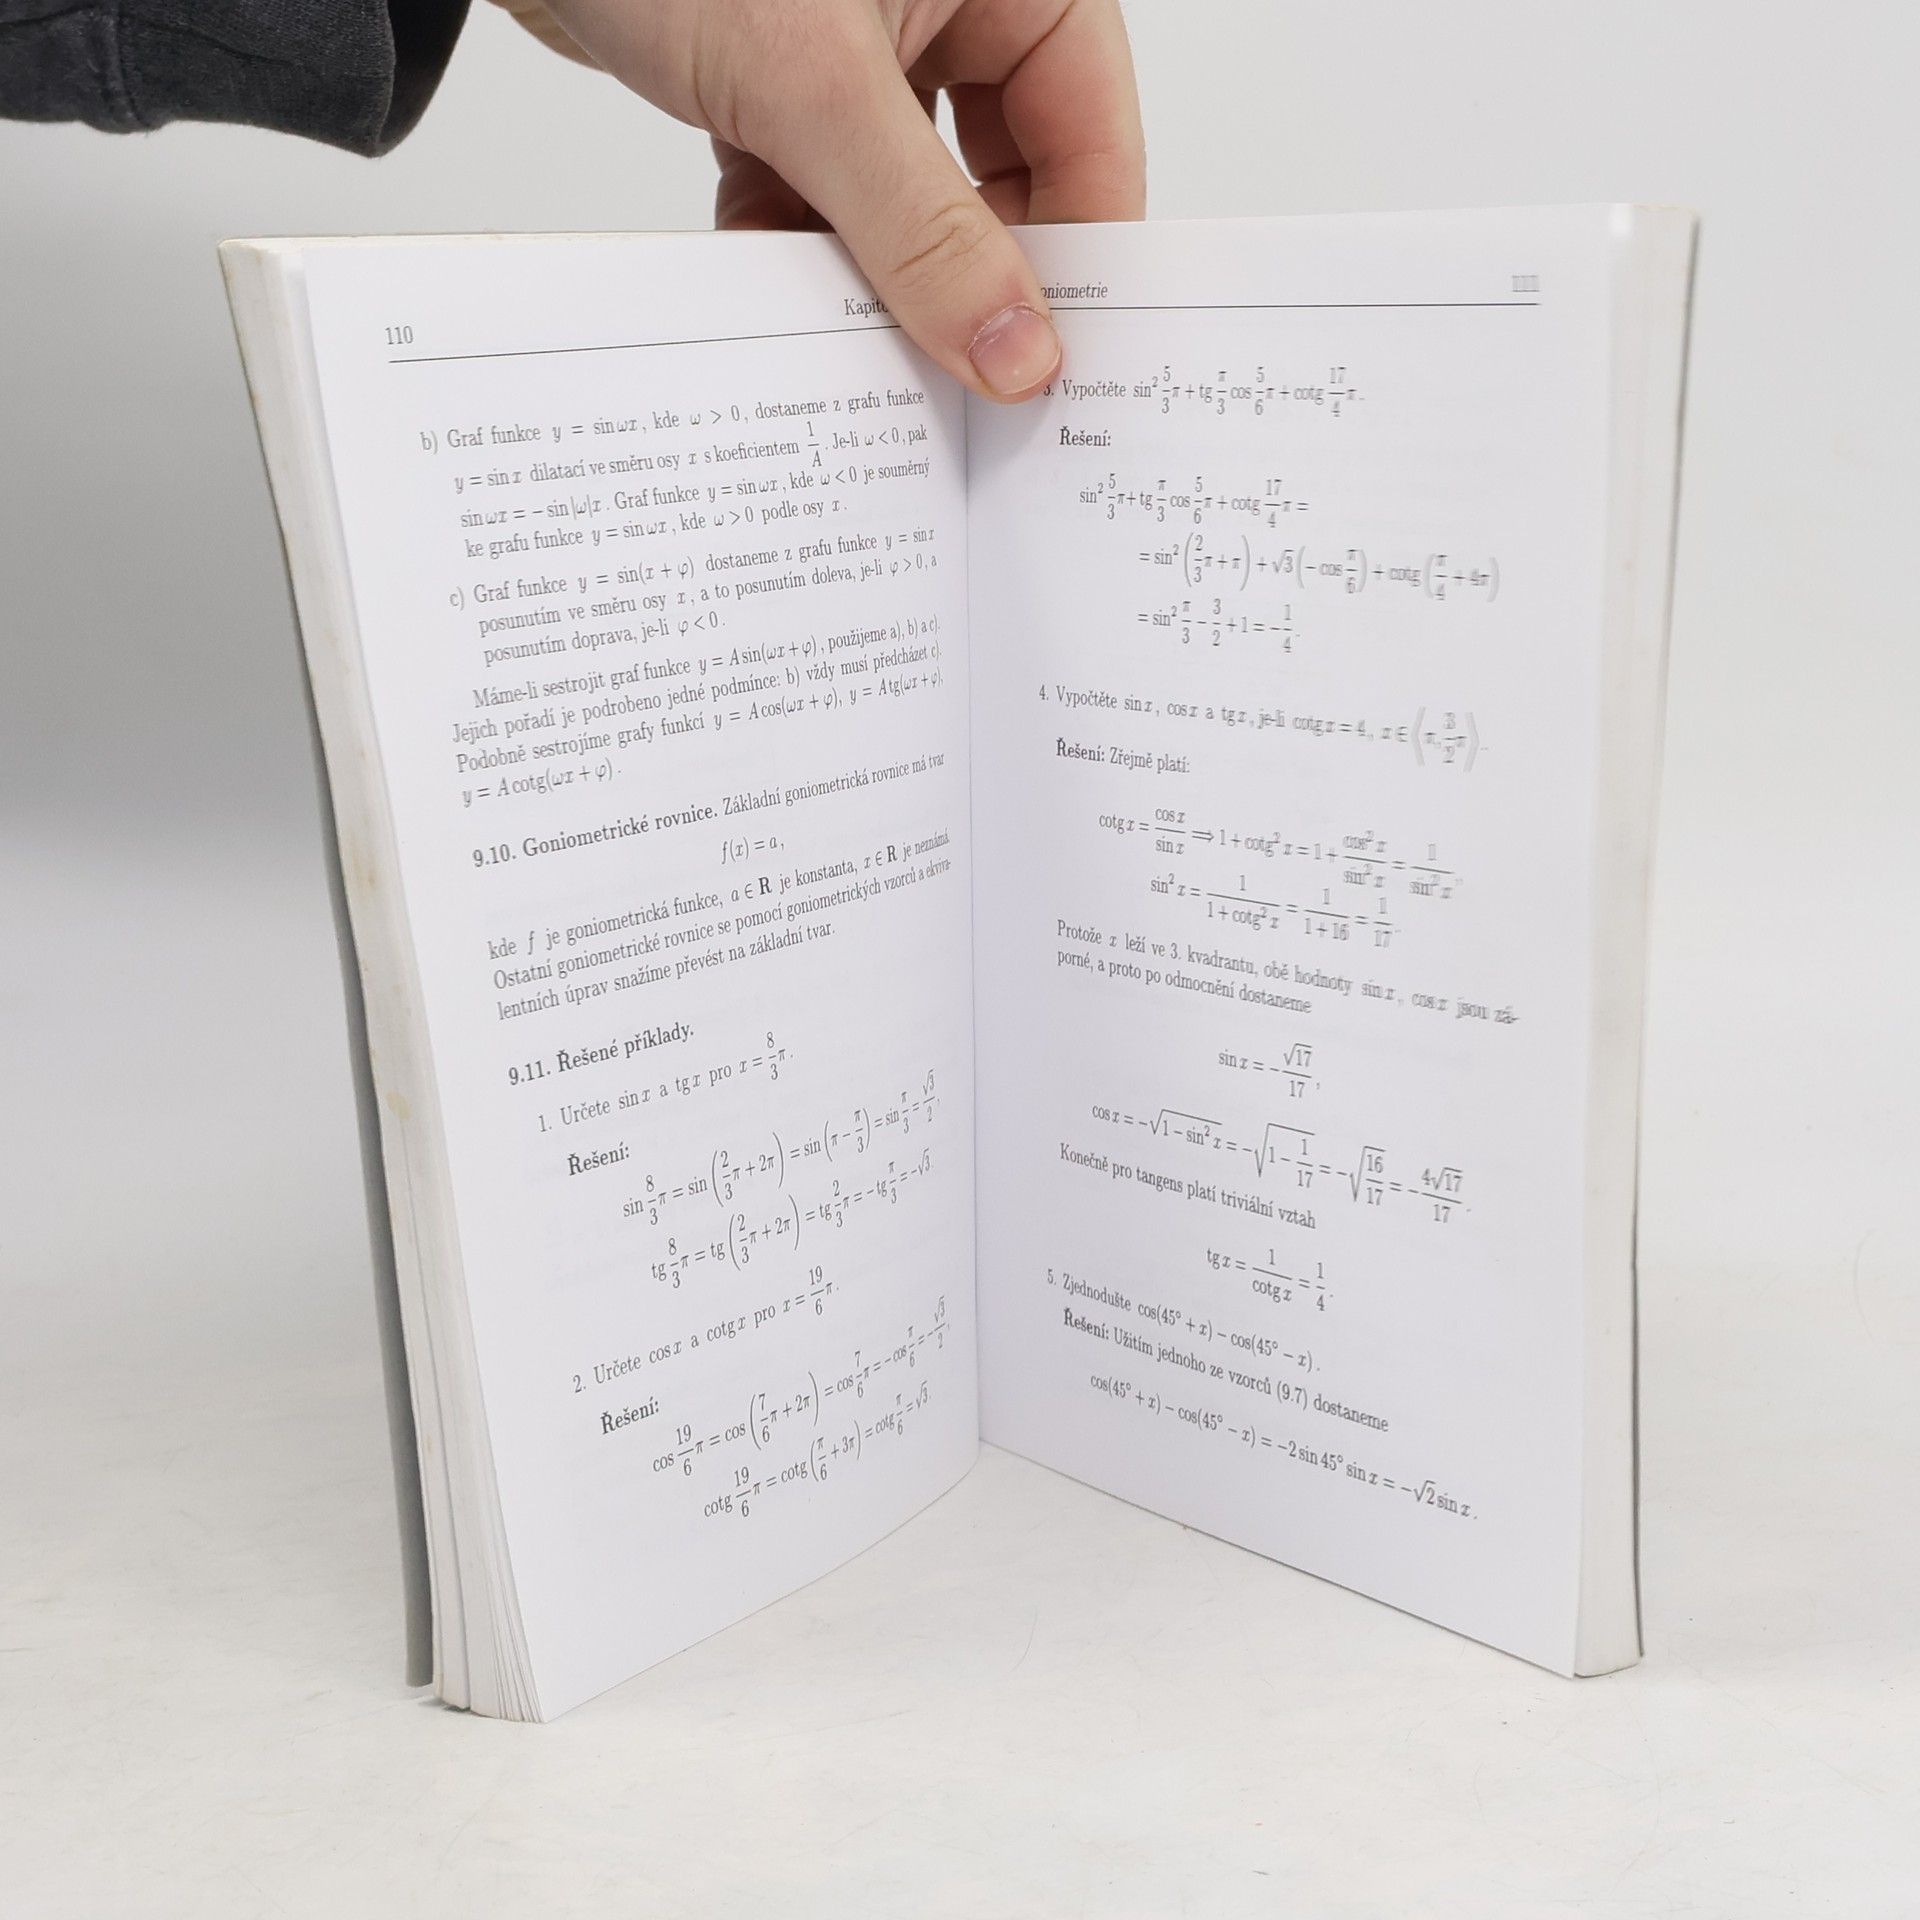 110
b) Graf funkce y = sin ωx, kde ω > 0, dostaneme z grafu funkce
y = sin x dilatací ve směru osy x s koeficientem 1/A. Je-li ω < 0, pak
sin ωx = − sin |ω|x. Graf funkce y = sin ωx, kde ω < 0 je souměrný
ke grafu funkce y = sin ωx, kde ω > 0 podle osy x.
c) Graf funkce y = sin(x + φ) dostaneme z grafu funkce y = sin x
posunutím ve směru osy x, a to posunutím doleva, je-li φ > 0, a
posunutím doprava, je-li φ < 0.
Máme-li sestrojit graf funkce y = A sin(ωx + φ), použijeme a), b) a c).
Jejich pořadí je podrobeno jedné podmínce: b) vždy musí předcházet c).
Podobně sestrojíme grafy funkcí y = A cos(ωx + φ), y = A tg(ωx + φ),
y = A cotg(ωx + φ).
9.10. Goniometrické rovnice. Základní goniometrická rovnice má tvar
f(x) = a,
kde f je goniometrická funkce, a ∈ R je konstanta, x ∈ R je neznámá
Ostatní goniometrické rovnice se pomocí goniometrických vzorců a ekviva-
lentních úprav snažíme převést na základní tvar.
9.11. Řešené příklady.
1. Určete sin x a tg x pro x = 8/3 π.
Řešení:
sin 8/3 π = sin (2/3 π + 2π) = sin (π − π/3) = sin π/3 = √3/2,
tg 8/3 π = tg (2/3 π + 2π) = tg 2/3 π = −tg π/3 = −√3.
2. Určete cos x a cotg x pro x = 19/6 π.
Řešení:
cos 19/6 π = cos (7/6 π + 2π) = cos 7/6 π = −cos π/6 = −√3/2,
cotg 19/6 π = cotg (π/6 + 3π) = cotg π/6 = √3.
111
3. Vypočtěte sin² 5/3 π + tg π/3 cos 5/6 π + cotg 17/4 π.
Řešení:
sin² 5/3 π + tg π/3 cos 5/6 π + cotg 17/4 π =
= sin² (2/3 π + π) + √3 (−cos π/6) + cotg (π/4 + 4π)
= sin² π/3 − 3/2 + 1 = −1/4.
4. Vypočtěte sin x, cos x a tg x, je-li cotg x = 4, x ∈ ⟨π, 3/2 π⟩.
Řešení: Zřejmě platí:
cotg x = cos x/sin x ⟹ 1 + cotg² x = 1 + cos² x/sin² x = 1/sin² x,
sin² x = 1/(1 + cotg² x) = 1/(1 + 16) = 1/17.
Protože x leží ve 3. kvadrantu, obě hodnoty sin x, cos x jsou zá-
porné, a proto po odmocnění dostaneme
sin x = −√17/17,
cos x = −√(1 − sin² x) = −√(1 − 1/17) = −√(16/17) = −4√17/17.
Konečně pro tangens platí triviální vztah
tg x = 1/cotg x = 1/4.
5. Zjednodušte cos(45° + x) − cos(45° − x).
Řešení: Užitím jednoho ze vzorců (9.7) dostaneme
cos(45° + x) − cos(45° − x) = −2 sin 45° sin x = −√2 sin x.